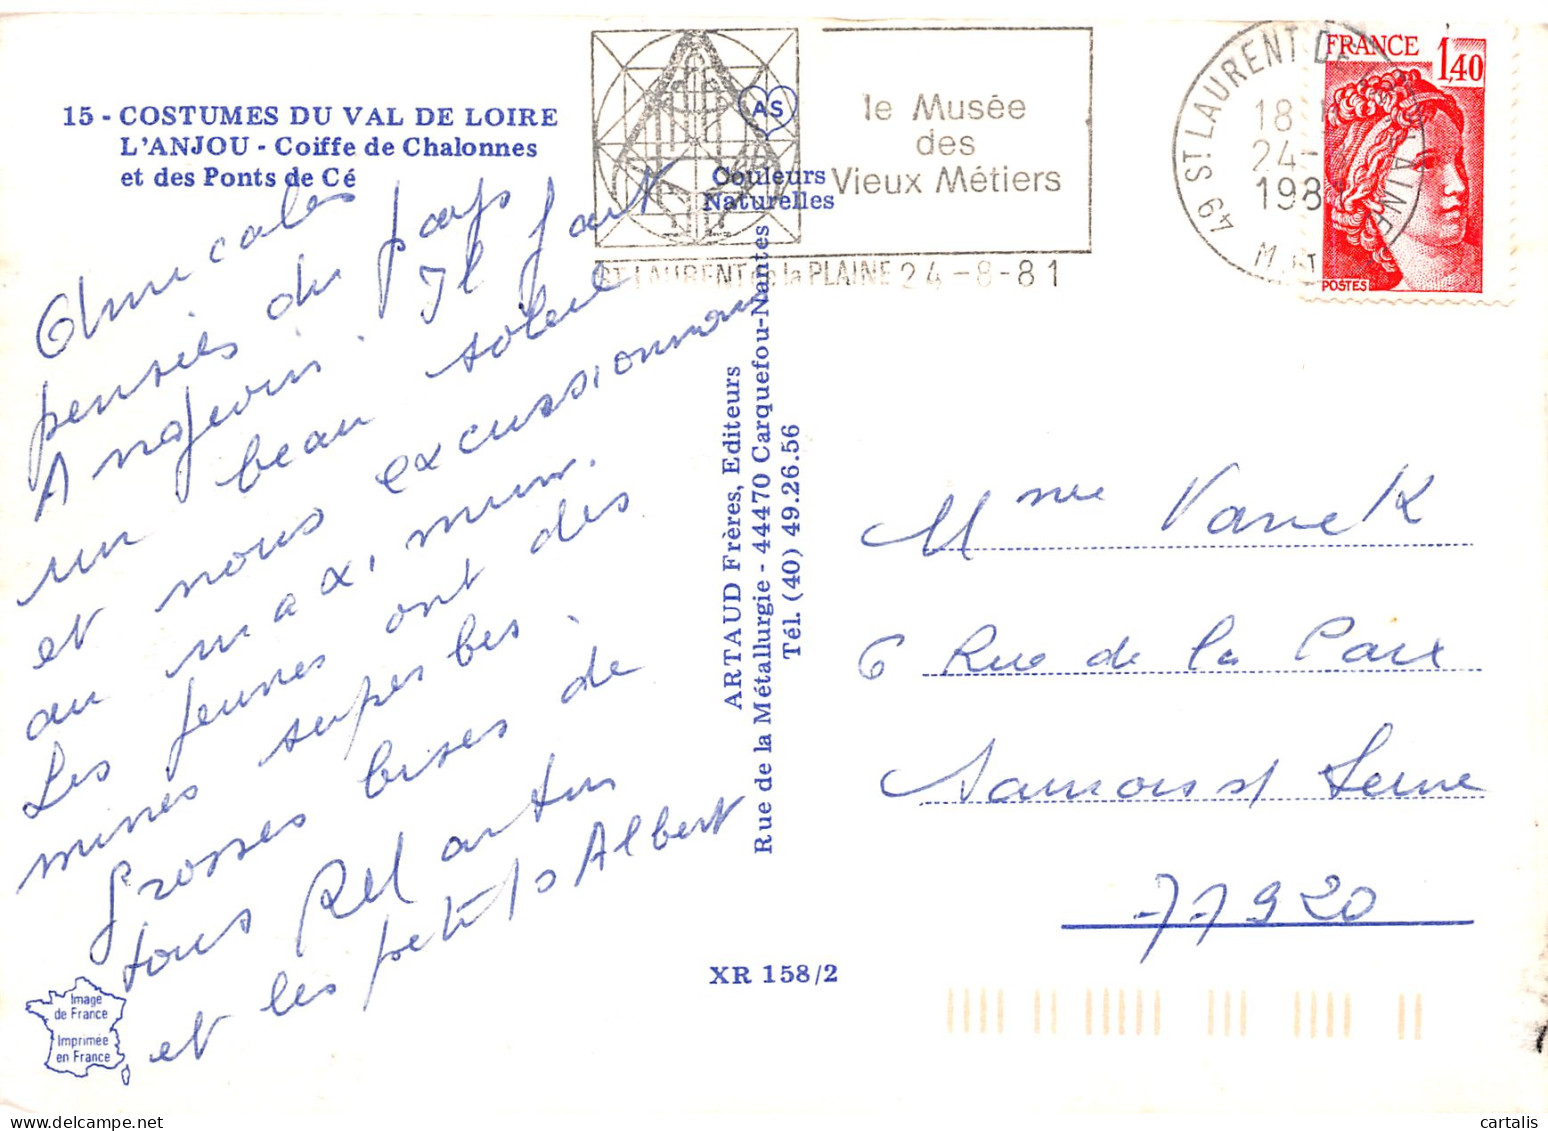 15 - COSTUMES DU VAL DE LOIRE
L'ANJOU - Coiffe de Chalonnes
et des Ponts de Cé
Amicales
pensées du pays
Angevin. Il fait
un beau soleil
et nous excussionnons
au max, mum.
Les jeunes ont des
mines superbes.
Grosses bises de
tous
et les petits Albert
AS
Couleurs
Naturelles
le Musée
des
Vieux Métiers
ST LAURENT de la PLAINE 24-8-81
49 ST LAURENT DE LA PLAINE
18 H
24-8
1981
M. ET L.
FRANCE
1,40
POSTES
ARTAUD Frères, Editeurs
Rue de la Métallurgie - 44470 Carquefou-Nantes
Tél. (40) 49.26.56
Mme Vaneck
6 Rue de la Paix
Samois s/ Seine
77920
XR 158/2
Image
de France
Imprimée
en France
cartalis